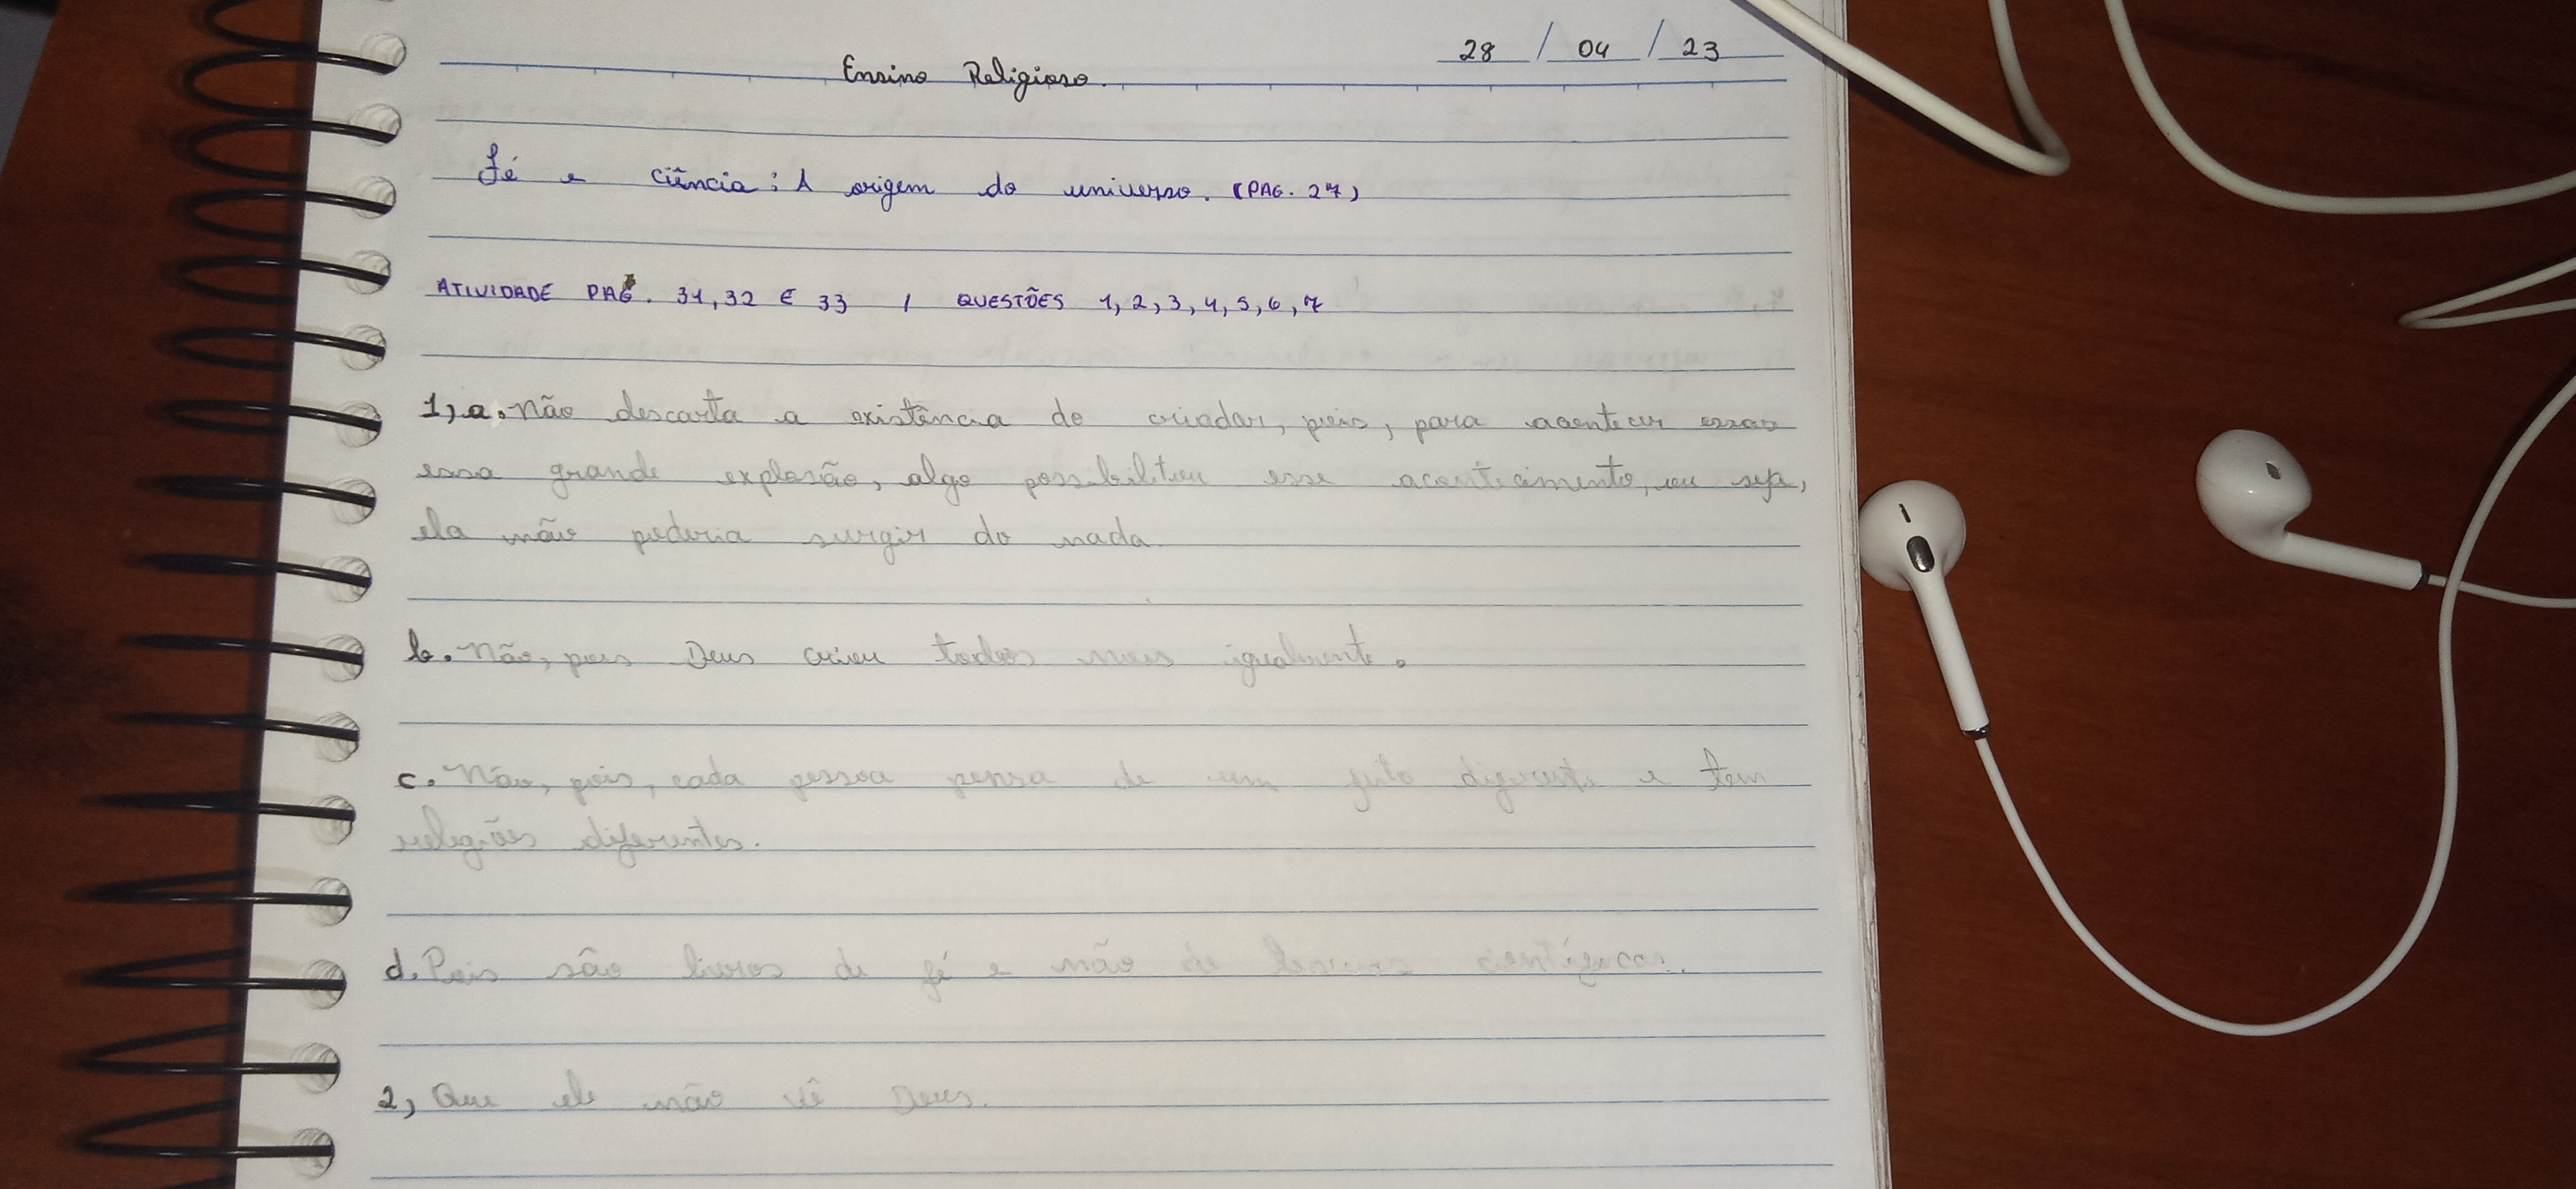 28 / 04 / 23
Ensino Religioso.
Fé e ciência: A origem do universo. (PAG. 27)
ATIVIDADE PAG. 31, 32 E 33 / QUESTÕES 1, 2, 3, 4, 5, 6, 7
1, a. Não descarta a existência do criador, pois, para acontecer
essa grande explosão, algo possibilitou esse acontecimento, ou seja,
ela não poderia surgir do nada
b. Não, pois Deus criou todos nós igualmente.
c. Não, pois, cada pessoa pensa de um jeito diferente e tem
religiões diferentes.
d. Pois são livros de fé e não de científicos.
2, Que ele não vê Deus.